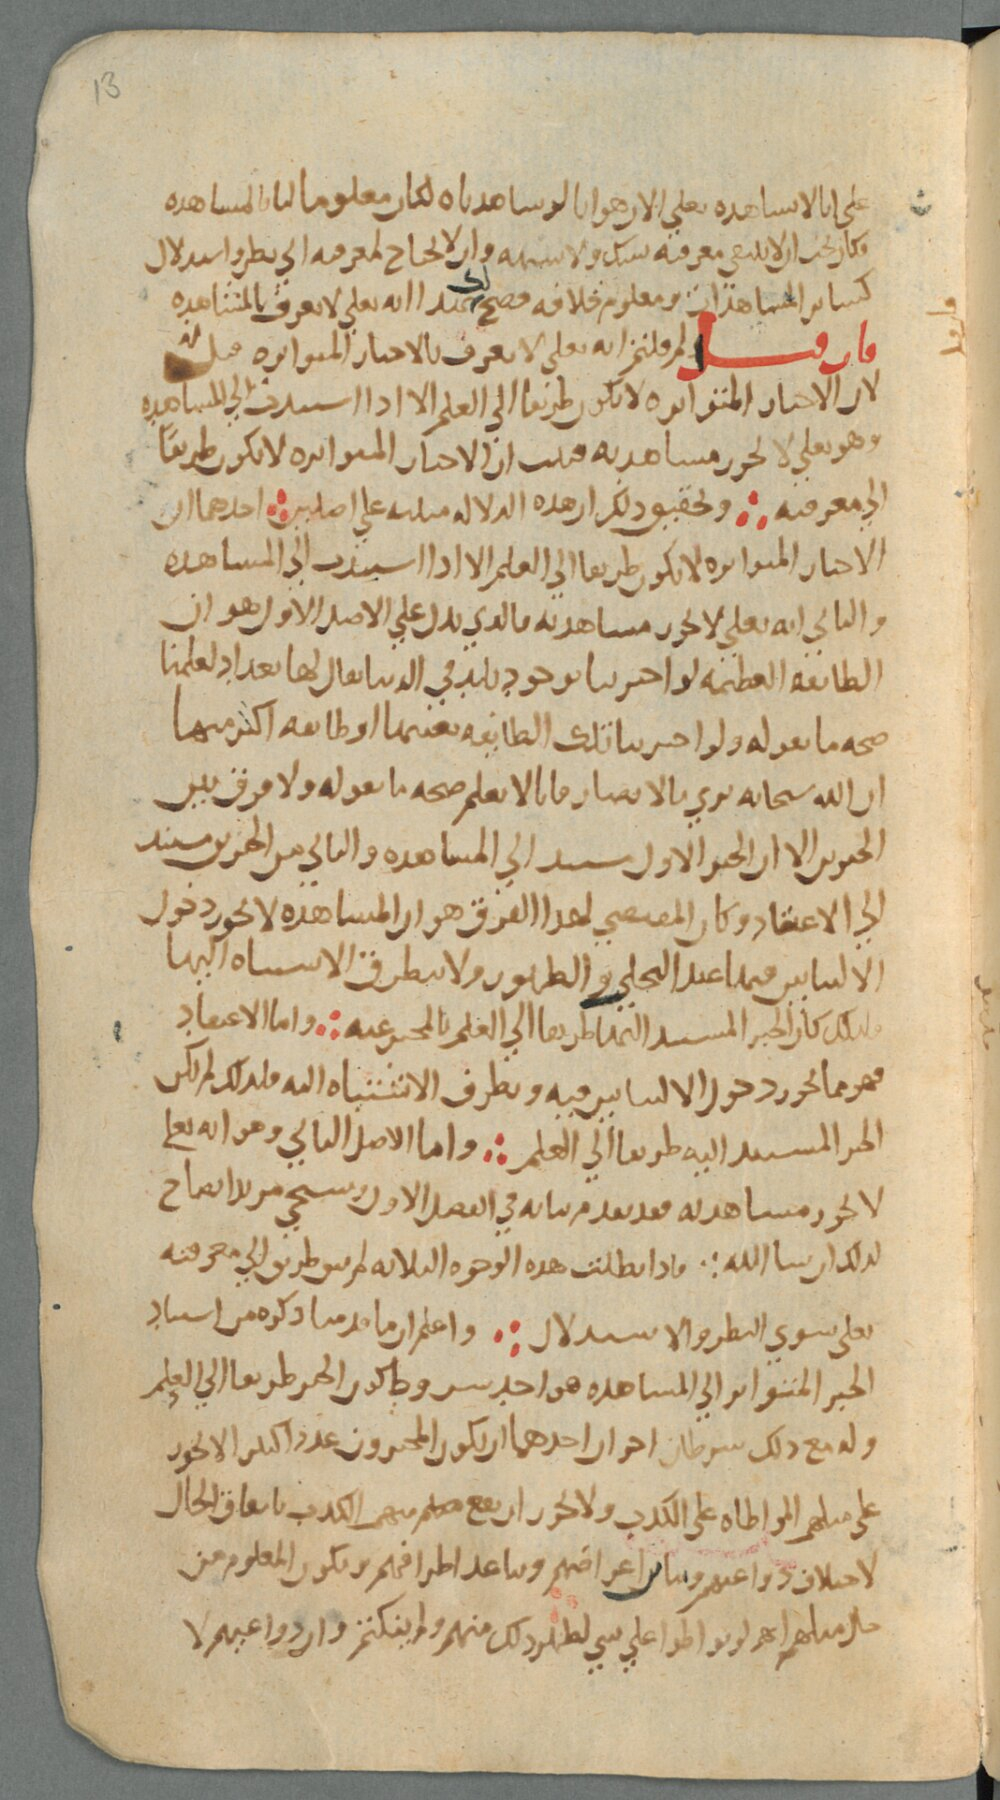 13
على انا لا نشاهده تعلى الان هو انا لو شاهدناه لكان معلوما لنا بالمشاهده
وكان يجب ان لا يلتبس معرفته شك ولا شبهه وان لا نحتاج لمعرفته الى نظر واستدلال
كسائر المشاهدات ومعلوم خلافه فصح بذلك انه تعلى لا يعرف بالمشاهده
فان قيل ولم قلتم انه تعلى لا يعرف بالاخبار المتواتره قيل له
لان الاخبار المتواتره لا تكون طريقا الى العلم الا اذا استندت الى المشاهده
وهو تعلى لا تجوز مشاهدته فثبت ان الاخبار المتواتره لا تكون طريقا
الى معرفته وتحقيق ذلك ان هذه الدلاله مبنيه على اصلين احدهما ان
الاخبار المتواتره لا تكون طريقا الى العلم الا اذا استندت الى المشاهده
والثاني انه تعلى لا تجوز مشاهدته فالذي يدل على الاصل الاول هو ان
الطائفه العظيمه لو اخبرتنا بوجود بلد في الدنيا يقال لها بغداد لعلمنا
صحه ما تقوله ولو اخبرتنا تلك الطائفه بعينها او طائفه اكثر منها
ان الله سبحانه يرى بالابصار فانا لا نعلم صحه ما تقوله ولا فرق بين
الخبرين الا ان الخبر الاول يستند الى المشاهده والثاني من الخبرين مستند
الى الاعتقاد وكان المقتضي لهذا الفرق هو ان المشاهده لا يجوز دخول
الالتباس فيها عند التجلي والظهور ولا يتطرق الاشتباه اليها
فلذلك كان الخبر المستند اليها طريقا الى العلم بالمخبر عنه واما الاعتقاد
فهو مما يجوز دخول الالتباس فيه ويطرق الاشتباه اليه فلذلك لم يكن
الخبر المستند اليه طريقا الى العلم واما الاصل الثاني وهو انه تعلى
لا تجوز مشاهدته فقد تقدم بيانه في الفصل الاول وسيجي مزيد ايضاح
لذلك ان شا الله فاذا بطلت هذه الوجوه الثلاثه لم يبق طريق الى معرفته
تعلى سوى النظر والاستدلال واعلم ان ما قدمنا ذكره من اسناد
الخبر المتواتر الى المشاهده هو احد شروط كون الخبر طريقا الى العلم
وله مع ذلك شرطان اخران احدهما ان يكون المخبرون عددا كثيرا لا يجوز
على مثلهم المواطاه على الكذب ولا يجوز ان يقع منهم الكذب باتفاق الحال
لاختلاف دواعيهم وتباين اغراضهم وتباعد اطرافهم ويكون المعلوم من
حال مثلهم انهم لو تواطوا على شي لظهر ذلك منهم ولم ينكتم وان دواعيهم لا